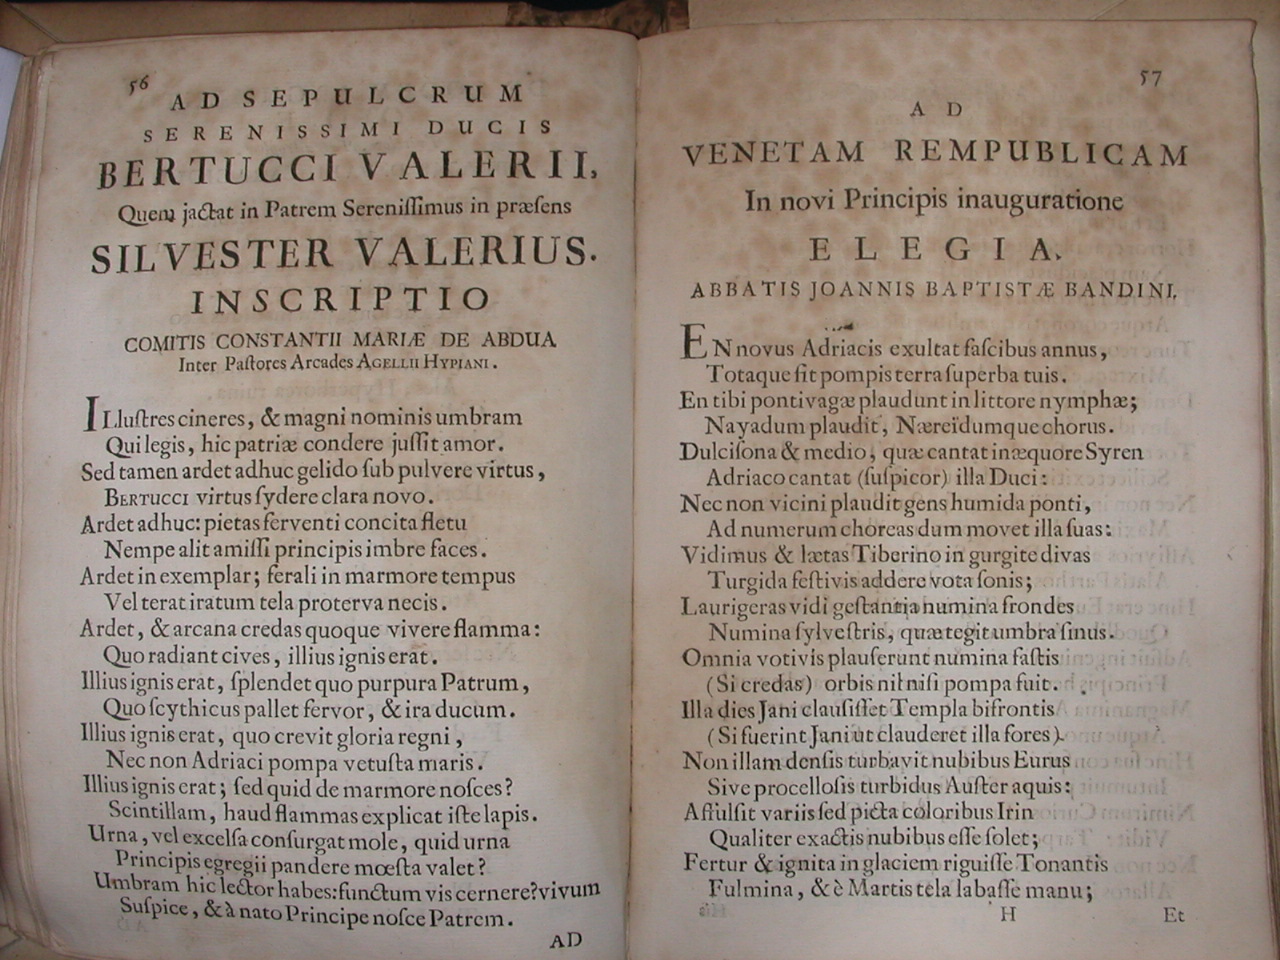 56
AD SEPULCRUM
SERENISSIMI DUCIS
BERTUCCI VALERII,
Quem jactat in Patrem Serenissimus in præsens
SILVESTER VALERIUS.
INSCRIPTIO
COMITIS CONSTANTII MARIÆ DE ABDUA
Inter Paſtores Arcades AGELLII HYPIANI.
ILluſtres cineres, & magni nominis umbram
Qui legis, hic patriæ condere juſſit amor.
Sed tamen ardet adhuc gelido ſub pulvere virtus,
BERTUCCI virtus ſydere clara novo.
Ardet adhuc: pietas ferventi concita fletu
Nempe alit amiſſi principis imbre faces.
Ardet in exemplar; ferali in marmore tempus
Vel terat iratum tela proterva necis.
Ardet, & arcana credas quoque vivere flamma:
Quo radiant cives, illius ignis erat.
Illius ignis erat, ſplendet quo purpura Patrum,
Quo ſcythicus pallet fervor, & ira ducum.
Illius ignis erat, quo crevit gloria regni,
Nec non Adriaci pompa vetuſta maris.
Illius ignis erat; ſed quid de marmore noſces?
Scintillam, haud flammas explicat iſte lapis.
Urna, vel excelſa conſurgat mole, quid urna
Principis egregii pandere mœſta valet?
Umbram hic lector habes: functum vis cernere? vivum
Suſpice, & à nato Principe noſce Patrem.
AD
57
AD
VENETAM REMPUBLICAM
In novi Principis inauguratione
ELEGIA.
ABBATIS JOANNIS BAPTISTÆ BANDINI.
EN novus Adriacis exultat faſcibus annus,
Totaque fit pompis terra ſuperba tuis.
En tibi pontivagæ plaudunt in littore nymphæ;
Nayadum plaudit, Næreïdumque chorus.
Dulciſona & medio, quæ cantat in æquore Syren
Adriaco cantat (ſuſpicor) illa Duci:
Nec non vicini plaudit gens humida ponti,
Ad numerum choreas dum movet illa ſuas:
Vidimus & lætas Tiberino in gurgite divas
Turgida feſtivis addere vota ſonis;
Laurigeras vidi geſtantia numina frondes
Numina ſylveſtris, quæ tegit umbra ſinus.
Omnia votivis plauſerunt numina faſtis
(Si credas) orbis nil niſi pompa fuit.
Illa dies Jani clauſiſſet Templa bifrontis
(Si fuerint Jani ut clauderet illa fores).
Non illam denſis turbavit nubibus Eurus
Sive procelloſis turbidus Auſter aquis:
Affulſit variis ſed picta coloribus Irin
Qualiter exactis nubibus eſſe ſolet;
Fertur & ignita in glaciem riguiſſe Tonantis
Fulmina, & è Martis tela labaſſe manu;
H
Et